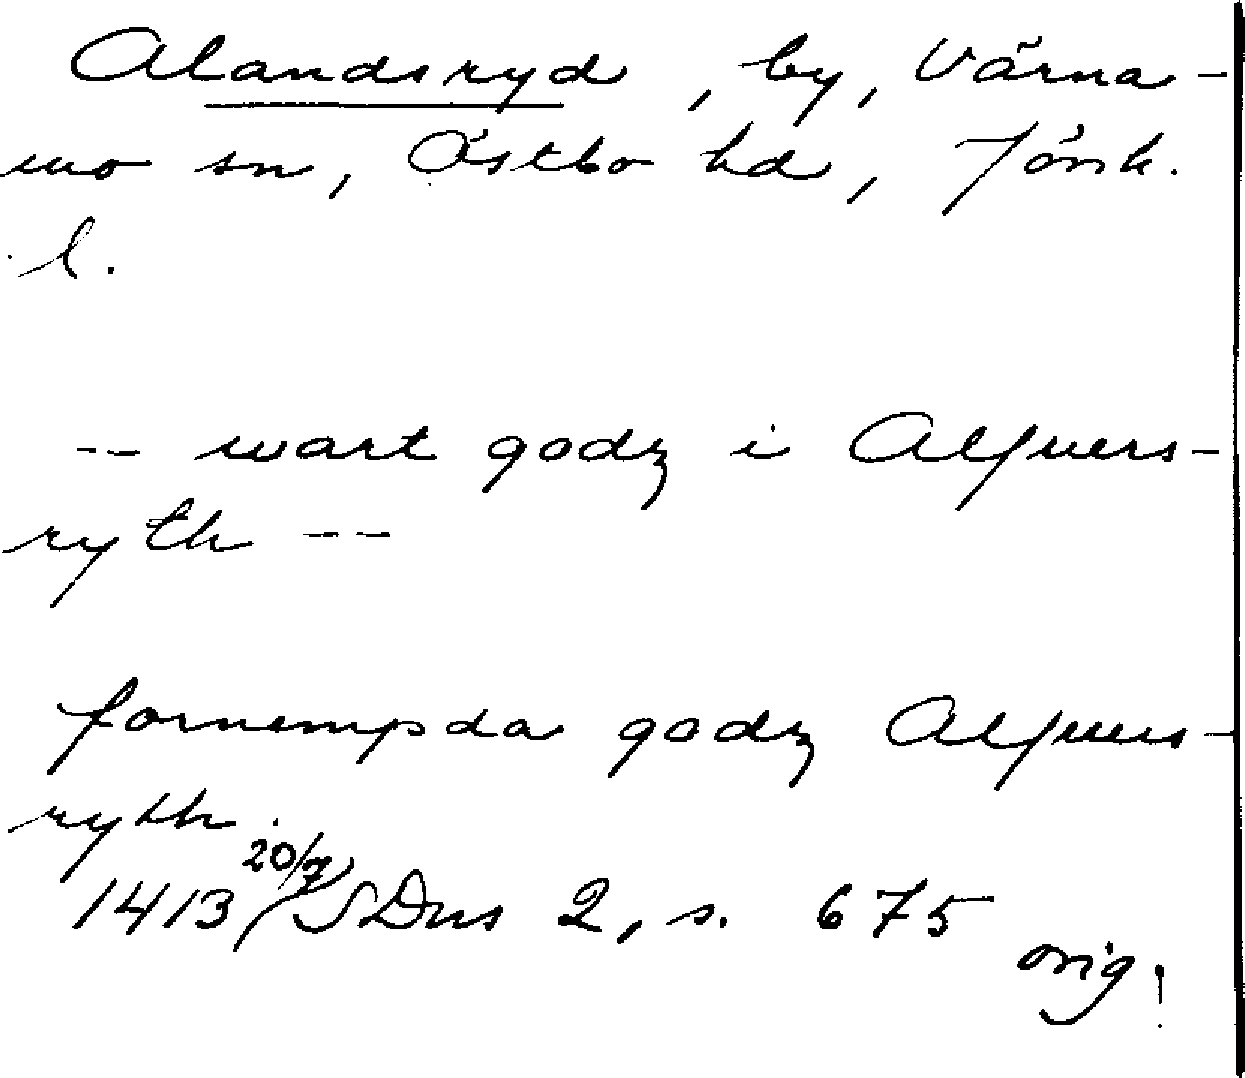 Alandsryd, by, Värna-
mo sn, Östbo hd, Jönk.
l.
-- wart godz i Alfuers-
ryth --
fornempda godz Alfuers-
ryth.
1413 20/7 SDns 2, s. 675
orig!